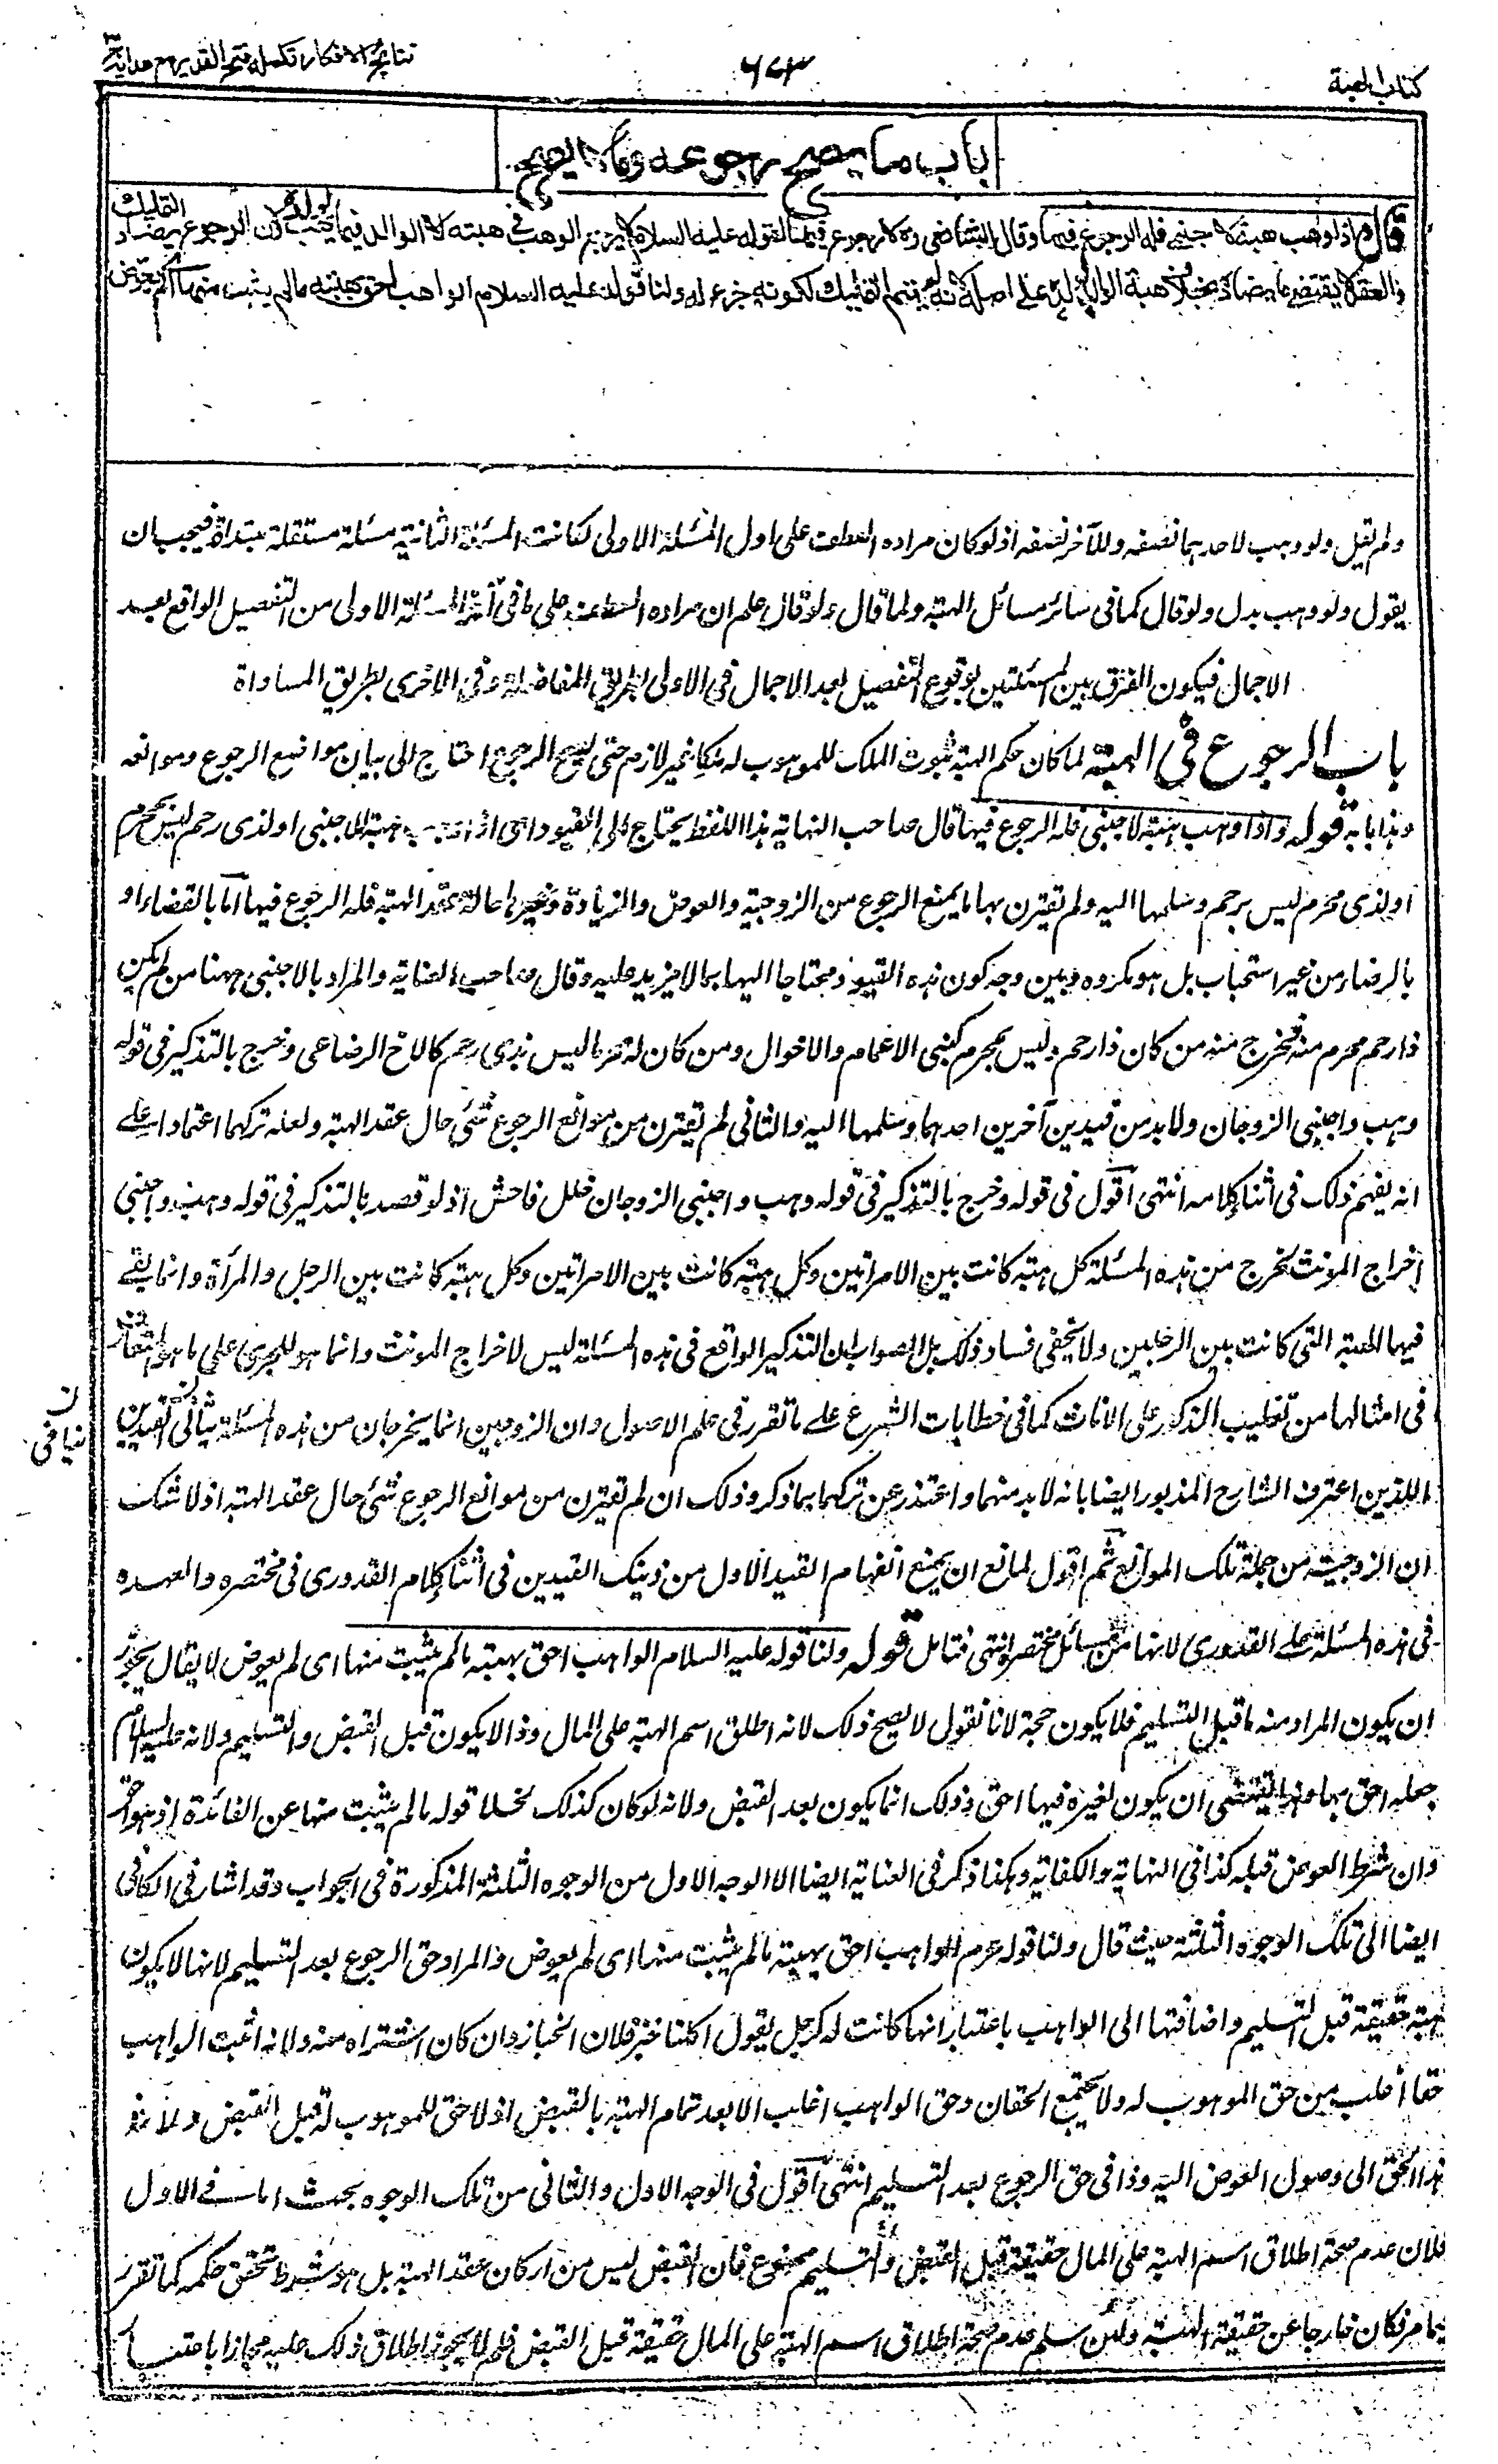 كتاب الهبة
٦٧٣
نتائج الافكار تكملة فتح القدير مع هداية ج٣
باب ما يصح رجوعه وما لا يصح
قال واذا وهب هبة لاجنبي فله الرجوع فيها وقال الشافعي رح لا رجوع فيها لقوله عليه السلام لا يرجع الواهب في هبته الا الوالد فيما يهب لولده ولان الرجوع يضاد التمليك
والعقد لا يقتضي ما يضاده بخلاف هبة الوالد لولده على اصله لانه لم يتم التمليك لكونه جزء له ولنا قوله عليه السلام الواهب احق بهبته ما لم يثب منها اي لم يعوض
ولم يقل ولو وهب لاحدهما نصفه وللآخر نصفه اذ لو كان مراده العطف على اول المسئلة الاولى لكانت المسئلة الثانية مسئلة مستقلة مبتدأة فيجب ان
يقول ولو وهب بدل ولو قال كما في سائر مسائل الهبة ولما قال ولو قال علم ان مراده العطف على ما في اثناء المسئلة الاولى من التفصيل الواقع بعد
الاجمال فيكون الفرق بين المسئلتين بوقوع التفصيل بعد الاجمال في الاولى بطريق المفاضلة وفي الاخرى بطريق المساواة
باب الرجوع في الهبة لما كان حكم الهبة ثبوت الملك للموهوب له ملكا غير لازم حتى يصح الرجوع احتاج الى بيان مواضع الرجوع وموانعه
وهذا بابه قوله واذا وهب هبة لاجنبي فله الرجوع فيها قال صاحب النهاية هذا اللفظ يحتاج الى القيود اي اذا وهب هبة لاجنبي او لذي رحم ليس بمحرم
او لذي محرم ليس برحم وسلمها اليه ولم تقترن بها ما يمنع الرجوع من الزوجية والعوض والزيادة وغيرها حالة عقد الهبة فله الرجوع فيها اما بالقضاء او
بالرضاء من غير استحباب بل هو مكروه وبين وجه كون هذه القيود محتاجا اليها بما لا مزيد عليه وقال صاحب العناية والمراد بالاجنبي ههنا من لم يكن
ذا رحم محرم منه فخرج منه من كان ذا رحم وليس بمحرم كبني الاعمام والاخوال ومن كان له محرما ليس بذي رحم كالاخ الرضاعي وخرج بالتذكير في قوله
وهب واجنبي الزوجان ولا بد من قيدين آخرين احدهما وسلمها اليه والثاني لم يقترن من موانع الرجوع شئ حال عقد الهبة ولعله تركهما اعتمادا على
انه يفهم ذلك في اثناء كلامه انتهى اقول في قوله وخرج بالتذكير في قوله وهب واجنبي الزوجان خلل فاحش اذ لو قصد بالتذكير في قوله وهب واجنبي
اخراج المونث لخرج من هذه المسئلة كل هبة كانت بين الامراتين وكل هبة كانت بين الامراتين وكل هبة كانت بين الرجل والمرأة وانما يبقى
فيها الهبة التي كانت بين الرجلين ولا يخفى فساد ذلك بل الصواب ان التذكير الواقع في هذه المسئلة ليس لاخراج المونث وانما هو للجري على ما هو المتعارف
في امثالها من تغليب الذكور على الاناث كما في خطابات الشرع على ما تقرر في علم الاصول وان الزوجين انما يخرجان من هذه المسئلة بثاني القيدين
اللذين اعترف الشارح المذبور ايضا بانه لا بد منهما واعتذر عن تركهما بما ذكر وذلك ان لم تقترن من موانع الرجوع شئ حال عقد الهبة اذ لا شك
ان الزوجية من جملة تلك الموانع ثم اقول لمانع ان يمنع انفهام القيد الاول من ذينك القيدين في اثناء كلام القدوري في مختصره والعهدة
في هذه المسئلة على القدوري لانها من مسائل مختصره انتهى فتامل قوله ولنا قوله عليه السلام الواهب احق بهبته ما لم يثب منها اي لم يعوض لا يقال يجوز
ان يكون المراد منه ما قبل التسليم فلا يكون حجة لانا نقول لا يصح ذلك لانه اطلق اسم الهبة على المال وذا لا يكون قبل القبض والتسليم ولانه عليه السلام
جعله احق بها وهذا يقتضي ان يكون لغيره فيها حق وذلك انما يكون بعد القبض ولانه لو كان كذلك لخلا قوله ما لم يثب منها عن الفائدة اذ هو احق
وان شرط العوض قبله كذا في النهاية والكفاية وهكذا ذكر في العناية ايضا الا الوجه الاول من الوجوه الثلثة المذكورة في الجواب وقد اشار في الكافي
ايضا الى تلك الوجوه الثلثة حيث قال ولنا قوله عرم الواهب احق بهبته ما لم يثب منها اي لم يعوض والمراد حق الرجوع بعد التسليم لانها لا يكون
هبة حقيقة قبل التسليم واضافتها الى الواهب باعتبار انها كانت له كرجل يقول اكلنا خبز فلان الخباز وان كان اشتراه منه ولانه اثبت الواهب
حقا اغلب من حق الموهوب له ولا يجتمع الحقان وحق الواهب اغلب الا بعد تمام الهبة بالقبض اذ لا حق للموهوب له قبل القبض ولانه
هذا الحق الى وصول العوض اليه وذا في حق الرجوع بعد التسليم انتهى اقول في الوجه الاول والثاني من تلك الوجوه بحث اما في الاول
فلان عدم صحة اطلاق اسم الهبة على المال حقيقة قبل القبض والتسليم ممنوع فان القبض ليس من اركان عقد الهبة بل هو شرط تحقق حكمه كما تقرر
فيما مر فكان خارجا عن حقيقة الهبة ولئن سلم عدم صحة اطلاق اسم الهبة على المال حقيقة قبل القبض فلم لا يجوز اطلاق ذلك عليه مجازا باعتبار